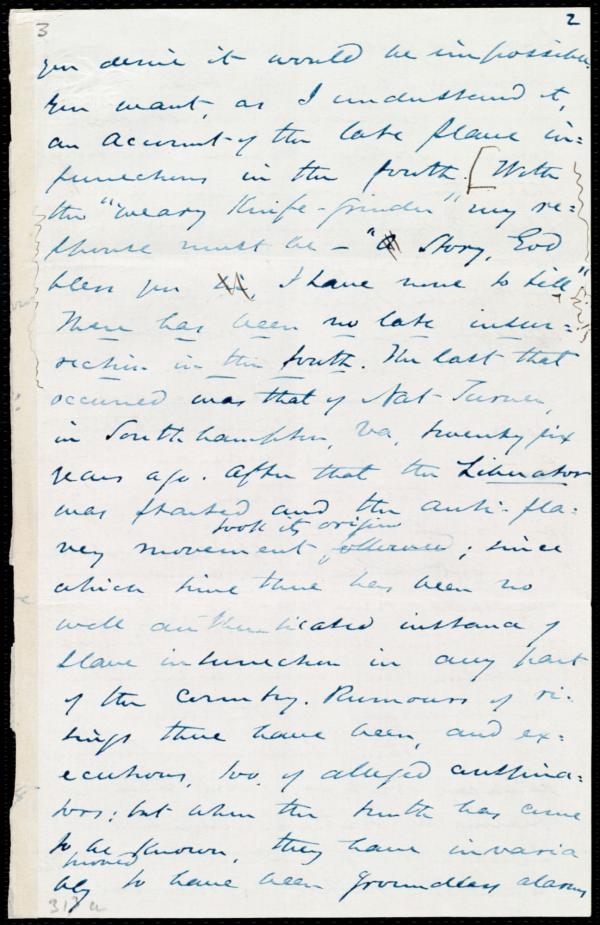 3 2
you desire it would be impossible.
You want, as I understand it,
an account of the late slave in=
surrections in the South. [With
the "weary Knife-grinder" my re=
sponse must be - "A Story, God
bless you, I have none to tell"
There has been no late insur=
rection in the South. The last that
occurred was that of Nat Turner,
in Southampton, Va, twenty six
years ago. After that the Liberator
was started and the anti-sla=
took its origin
very movement followed; since
which time there has been no
well authenticated instance of
slave insurrection in any part
of the country. Rumours of ri=
sings there have been, and ex=
ecutions, too, of alleged conspira=
tors; but when the truth has come
to be known, they have invaria
proved
bly to have been groundless alarms